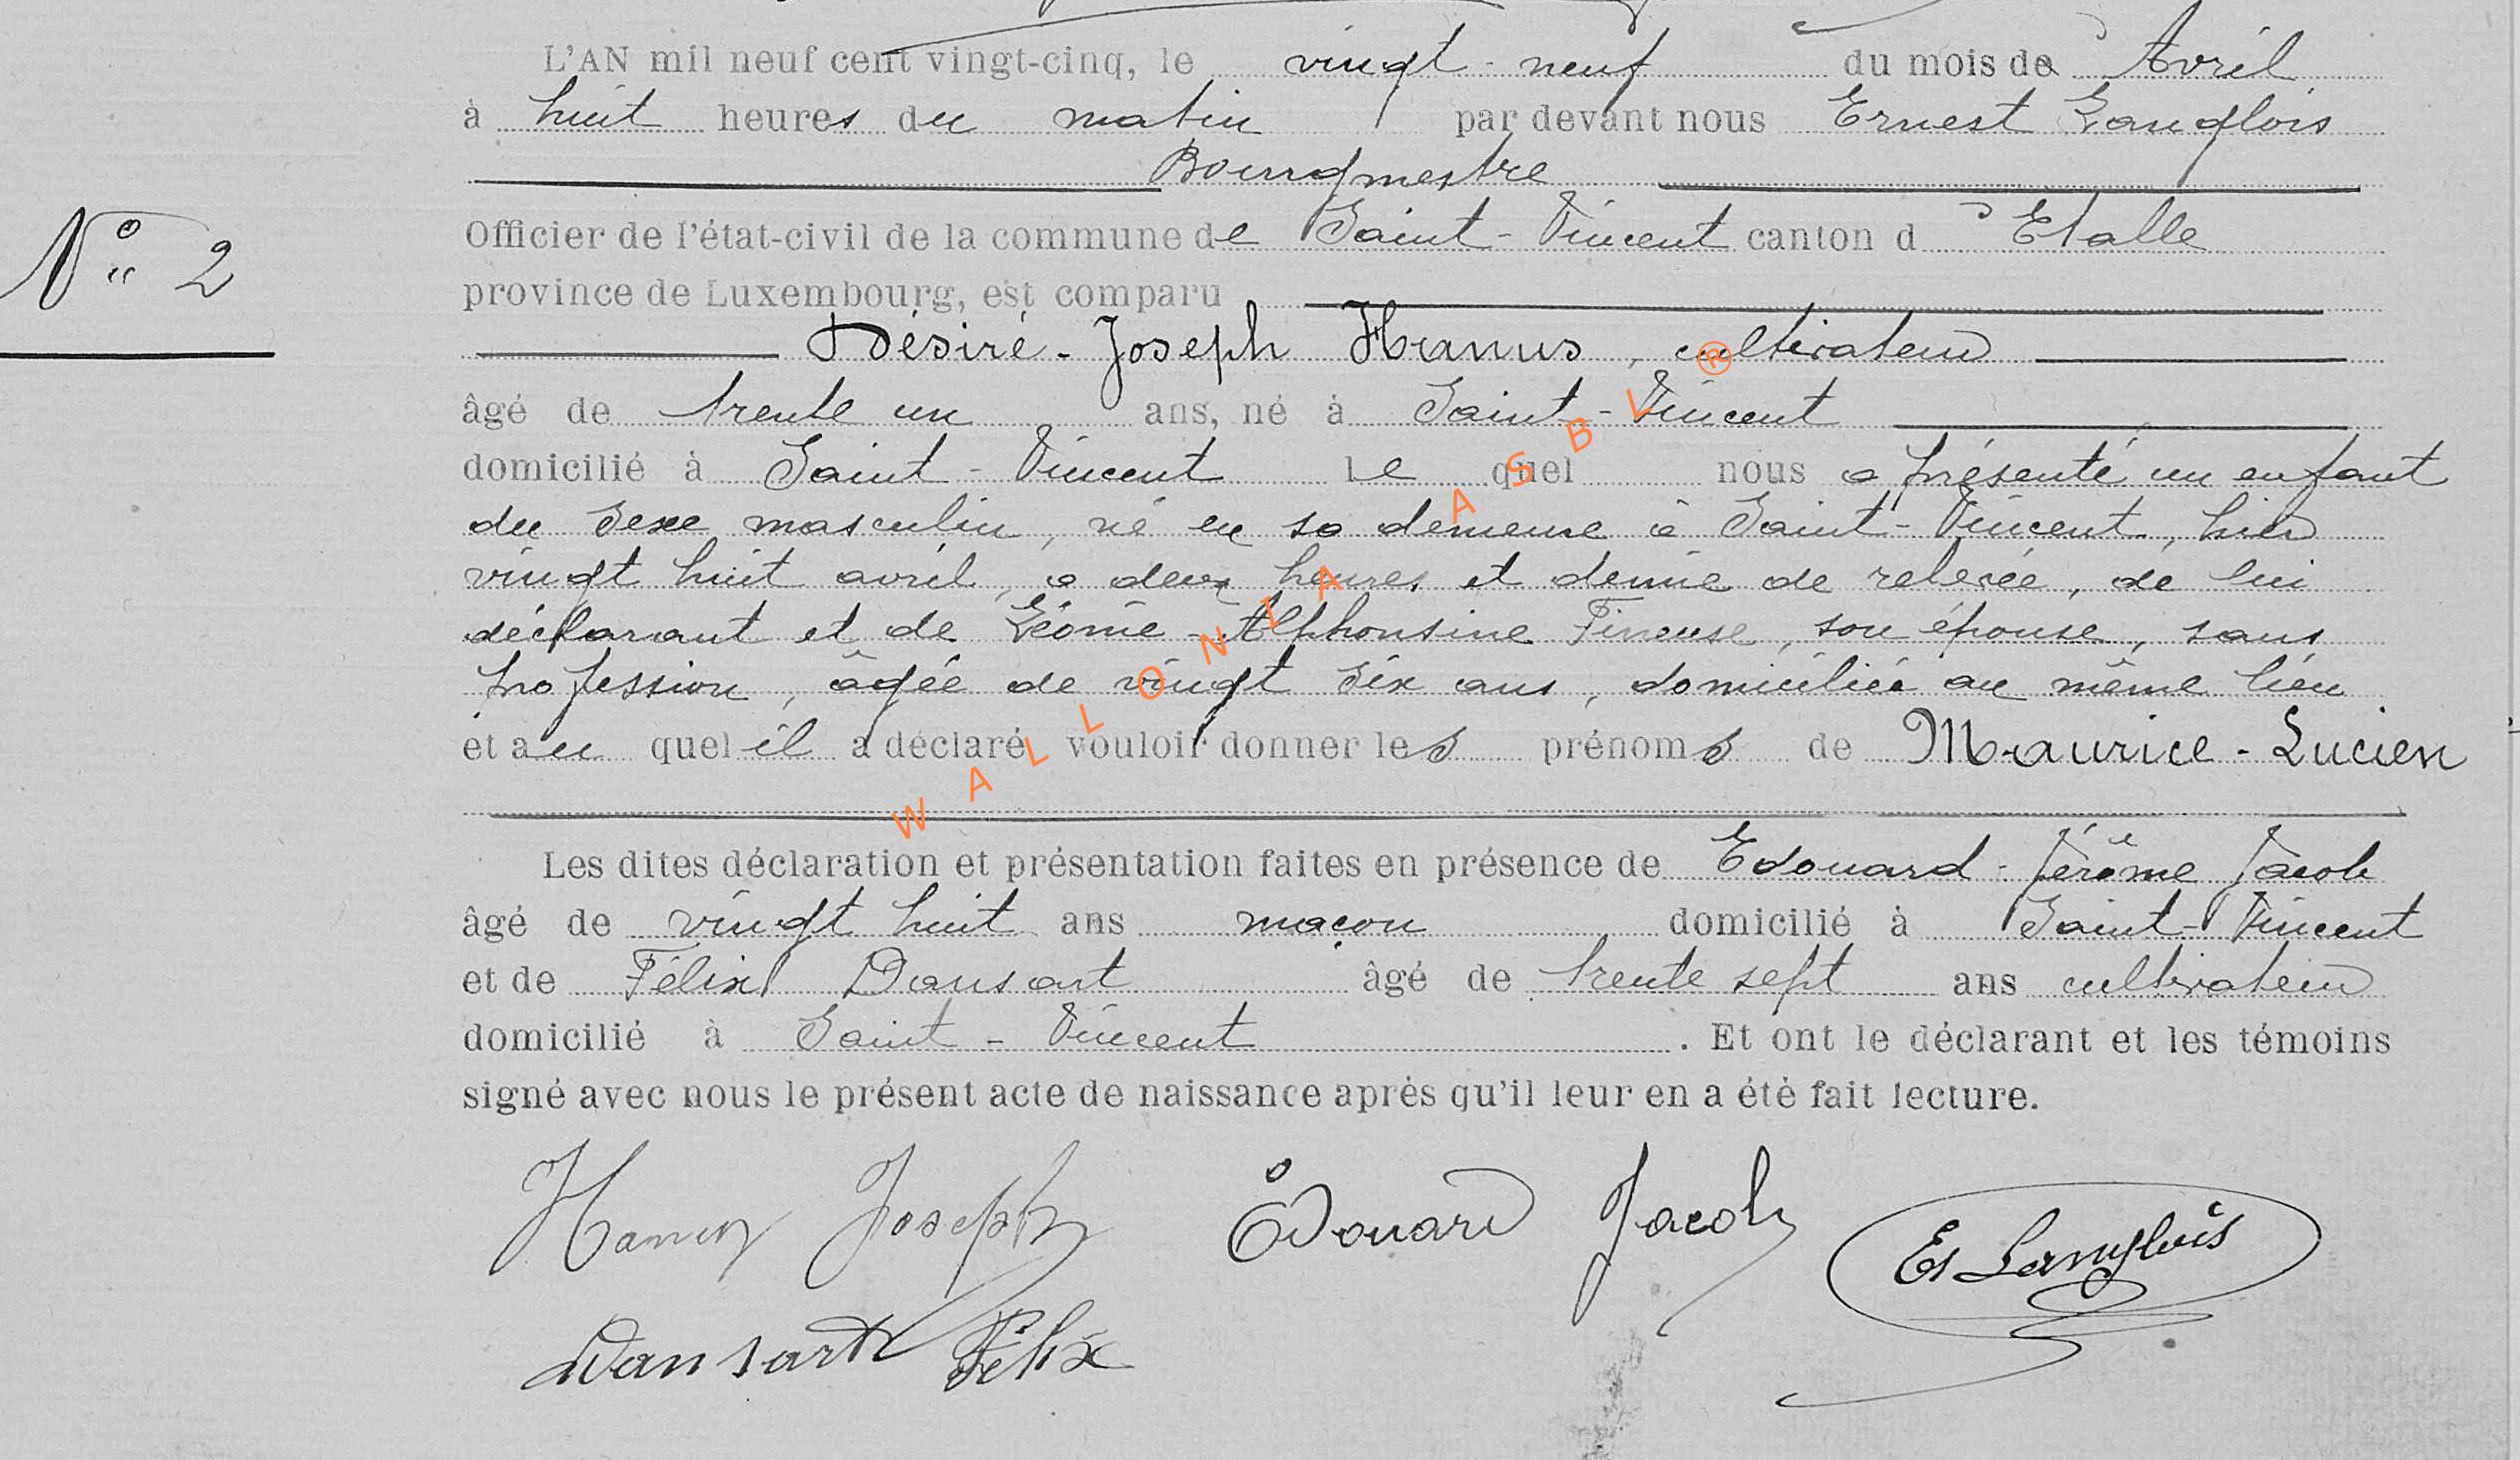 L'AN mil neuf cent vingt-cinq, le vingt-neuf du mois de Avril
à huit heures du matin par devant nous Ernest Langlois
Bourgmestre
N° 2
Officier de l'état-civil de la commune de Saint-Vincent canton d'Etalle
province de Luxembourg, est comparu
Désiré-Joseph Hanus, cultivateur
âgé de trente un ans, né à Saint-Vincent
domicilié à Saint-Vincent lequel nous a présenté un enfant
du sexe masculin, né en sa demeure à Saint-Vincent, hier
vingt huit avril, à deux heures et demie de relevée, de lui
déclarant et de Léonie-Alphonsine Fineuse, son épouse, sans
profession, âgée de vingt six ans, domiciliée au même lieu
et auquel il a déclaré vouloir donner les prénoms de Maurice-Lucien
Les dites déclaration et présentation faites en présence de Edouard-Jérôme Jacob
âgé de vingt huit ans maçon domicilié à Saint-Vincent
et de Félix Dansart âgé de trente sept ans cultivateur
domicilié à Saint-Vincent. Et ont le déclarant et les témoins
signé avec nous le présent acte de naissance après qu'il leur en a été fait lecture.
Hanus Joseph Edouard Jacob Et Langlois
Dansart Félix
WALLONIA ASBL ®